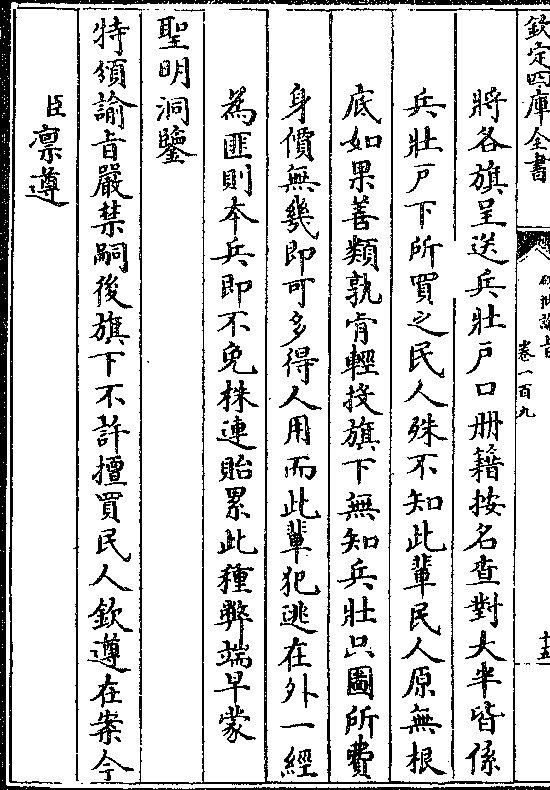 欽定四庫全書
硃批諭旨
卷一百九
十五
將各旗呈送兵壯戶口冊籍按名查對大半皆係
兵壯戶下所買之民人殊不知此輩民人原無根
底如果善類孰肯輕投旗下無知兵壯只圖所費
身價無幾即可多得人用而此輩犯逃在外一經
為匪則本兵即不免株連貽累此種弊端早蒙
聖明洞鑒
特頒諭旨嚴禁嗣後旗下不許擅買民人欽遵在案今
臣凛遵